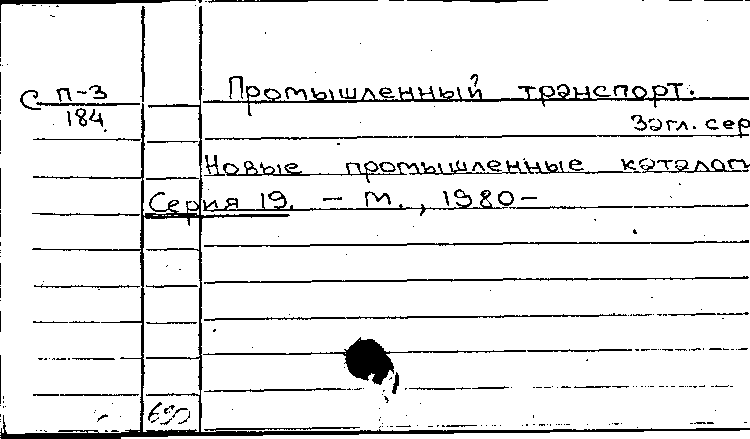 С П-3
184
Промышленный транспорт.
Загл. сер
Новые промышленные каталоги
Серия 19. – М., 1980–
690